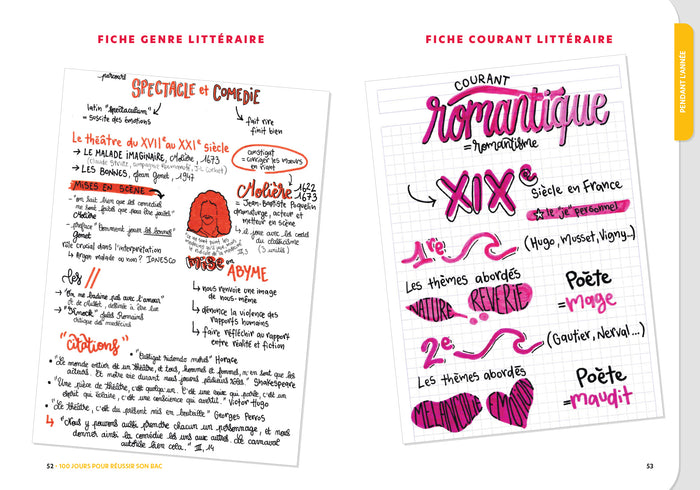 FICHE GENRE LITTÉRAIRE
parcours
SPECTACLE et COMEDIE
latin "spectaculum"
= suscite des émotions
fait rire
finit bien
Le théâtre du XVIIe au XXIe siècle
→ LE MALADE IMAGINAIRE, Molière, 1673
→ LES BONNES, Jean Genet, 1947
castigat
= corriger les mœurs
en riant
MISES EN SCÈNE
Molière
1622
1673
= Jean-Baptiste Poquelin
dramaturge, acteur et
metteur en scène
- "on sait bien que les comédies
ne sont faites que pour être jouées"
Molière
- préface "Comment jouer les bonnes"
Genet
rôle crucial dans l'interprétation
↳ Argan malade ou non ? IONESCO
+ il joue avec les codes
du classicisme
(3 unités)
MISE en
ABYME
↳ nous renvoie une image
de nous-même
↳ dénonce la violence des
rapports humains
↳ faire réfléchir au rapport
entre réalité et fiction
les //
→ "On ne badine pas avec l'amour"
→ "Knock" Jules Romains
critique des médecins
"citations"
• "Castigat ridendo mores" Horace
• "Le monde entier est un théâtre, et tous, hommes et femmes, n'en sont que les
acteurs. Et notre vie durant nous jouons plusieurs rôles." Shakespeare
• "Une pièce de théâtre, c'est quelqu'un. C'est une voix qui parle, c'est un
esprit qui éclaire, c'est une conscience qui avertit." Victor Hugo
• "Le théâtre, c'est du présent mis en bouteille" Georges Perros
↳ "Nous y pouvons aussi prendre chacun un personnage, et nous
donner ainsi la comédie les uns aux autres. Le carnaval
autorise bien cela." III, 14
52 • 100 JOURS POUR RÉUSSIR SON BAC
FICHE COURANT LITTÉRAIRE
COURANT
romantique
= romantisme
XIXe
Siècle en France
☆ le "je" personnel
1re
(Hugo, Musset, Vigny...)
Les thèmes abordés
NATURE
REVERIE
Poète
= mage
2e
(Gautier, Nerval...)
Les thèmes abordés
MÉLANCOLIE
EMOTION
Poète
= maudit
53
PENDANT L'ANNÉE